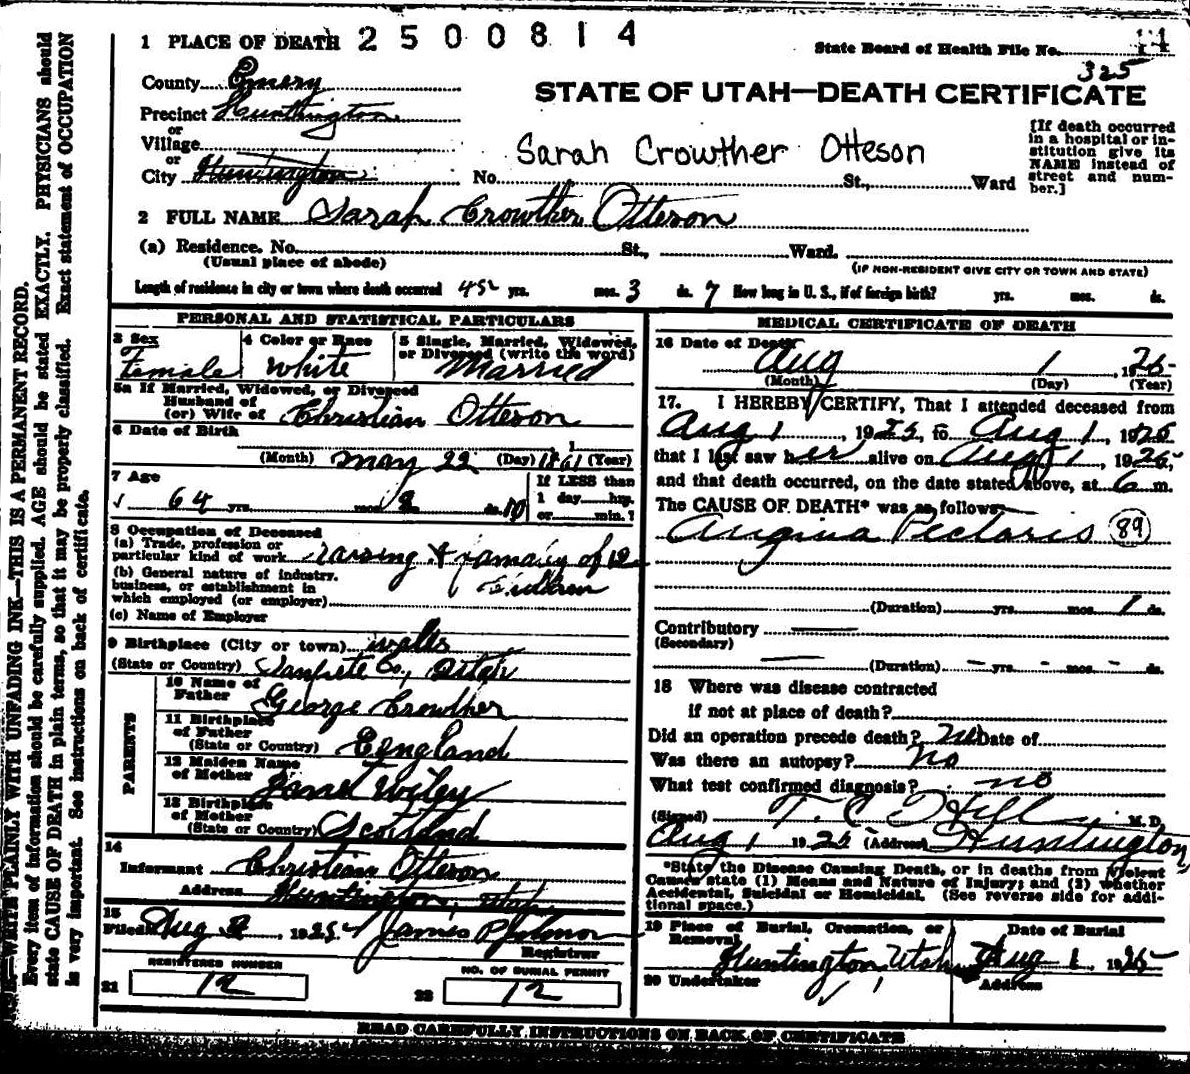 1 PLACE OF DEATH 2500814
State Board of Health File No. 14
325
County Emery
STATE OF UTAH—DEATH CERTIFICATE
Precinct Hunthington
or
Village
or
City Huntington No. St., Ward
Sarah Crowther Otteson
[If death occurred
in a hospital or in-
stitution give its
NAME instead of
street and num-
ber.]
2 FULL NAME Sarah Crowther Otteson
(a) Residence. No. St., Ward.
(Usual place of abode)
(IF NON-RESIDENT GIVE CITY OR TOWN AND STATE)
Length of residence in city or town where death occurred 45 yrs. mos. 3 ds. 7 How long in U. S., if of foreign birth? yrs. mos. ds.
PERSONAL AND STATISTICAL PARTICULARS
3 Sex
Female
4 Color or Race
White
5 Single, Married, Widowed,
or Divorced (write the word)
Married
5a If Married, Widowed, or Divorced
Husband of
(or) Wife of Christian Otteson
6 Date of Birth
(Month) May 22 (Day) 1861 (Year)
7 Age
64 yrs. mos. 2 ds. 10
If LESS than
1 day hrs.
or min.?
8 Occupation of Deceased
(a) Trade, profession or
particular kind of work raising & famaily of 12
(b) General nature of industry,
business, or establishment in
which employed (or employer)
(c) Name of Employer
9 Birthplace (City or town) walls
(State or Country) Sanpete Co., Utah
PARENTS
10 Name of
Father George Crowther
11 Birthplace
of Father
(State or Country) England
12 Maiden Name
of Mother Janet Wiley
13 Birthplace
of Mother
(State or Country) Scotland
14
Informant Christian Otteson
Address Huntington, Utah
15
Filed Aug 1925 James P
Registrar
REGISTERED NUMBER
21 12
NO. OF BURIAL PERMIT
22 12
MEDICAL CERTIFICATE OF DEATH
16 Date of Death
Aug 1, 1925
(Month) (Day) (Year)
17. I HEREBY CERTIFY, That I attended deceased from
Aug 1, 1925, to Aug 1, 1925
that I last saw her alive on Aug 1, 1925,
and that death occurred, on the date stated above, at 6 m.
The CAUSE OF DEATH* was as follows:
Angina Pectoris 89
(Duration) yrs. mos. 1 ds.
Contributory
(Secondary)
(Duration) yrs. mos. ds.
18 Where was disease contracted
if not at place of death?
Did an operation precede death? No Date of
Was there an autopsy? no
What test confirmed diagnosis? no
(Signed) T. C. Hill M. D.
Aug 1 1925 (Address) Huntington
*State the Disease Causing Death, or in deaths from Violent
Causes state (1) Means and Nature of Injury; and (2) whether
Accidental, Suicidal or Homicidal. (See reverse side for addi-
tional space.)
19 Place of Burial, Cremation, or
Removal
Huntington, Utah
Date of Burial
Aug 1, 1925
20 Undertaker
Address
READ CAREFULLY INSTRUCTIONS ON BACK OF CERTIFICATE
WRITE PLAINLY WITH UNFADING INK—THIS IS A PERMANENT RECORD.
Every item of information should be carefully supplied. AGE should be stated EXACTLY. PHYSICIANS should
state CAUSE OF DEATH in plain terms, so that it may be properly classified. Exact statement of OCCUPATION
is very important. See instructions on back of certificate.